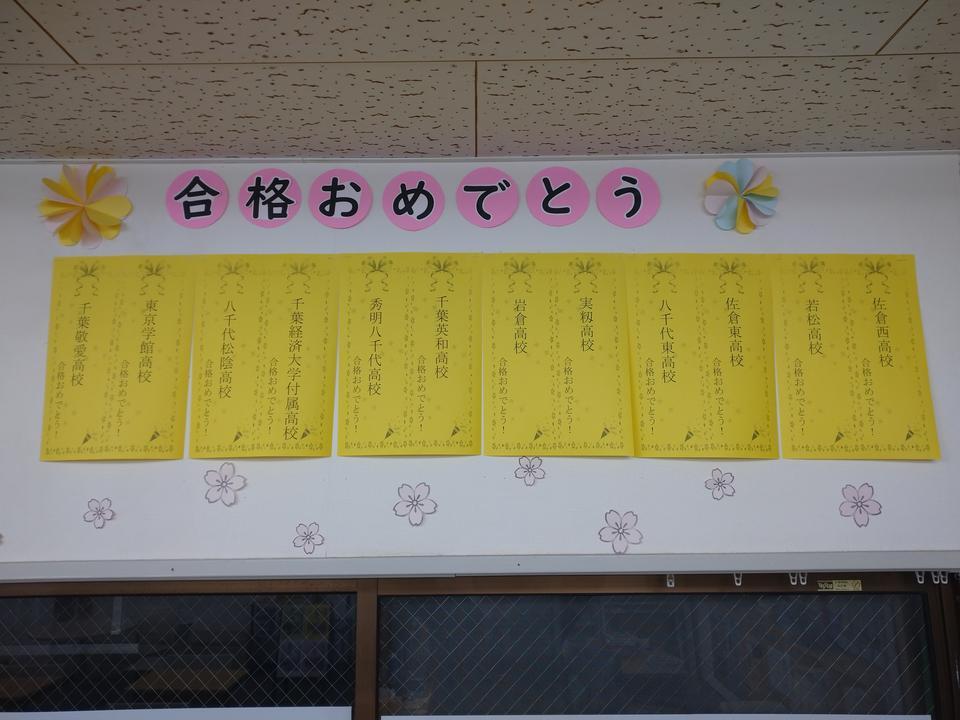 合格おめでとう
佐倉西高校
合格おめでとう！
若松高校
合格おめでとう！
佐倉東高校
合格おめでとう！
八千代東高校
合格おめでとう！
実籾高校
合格おめでとう！
岩倉高校
合格おめでとう！
千葉英和高校
合格おめでとう！
秀明八千代高校
合格おめでとう！
千葉経済大学付属高校
合格おめでとう！
八千代松陰高校
合格おめでとう！
東京学館高校
合格おめでとう！
千葉敬愛高校
合格おめでとう！